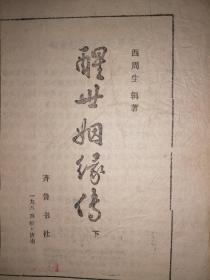 西周生 辑著
醒世姻缘传
下
齐鲁书社
一九八四年·济南